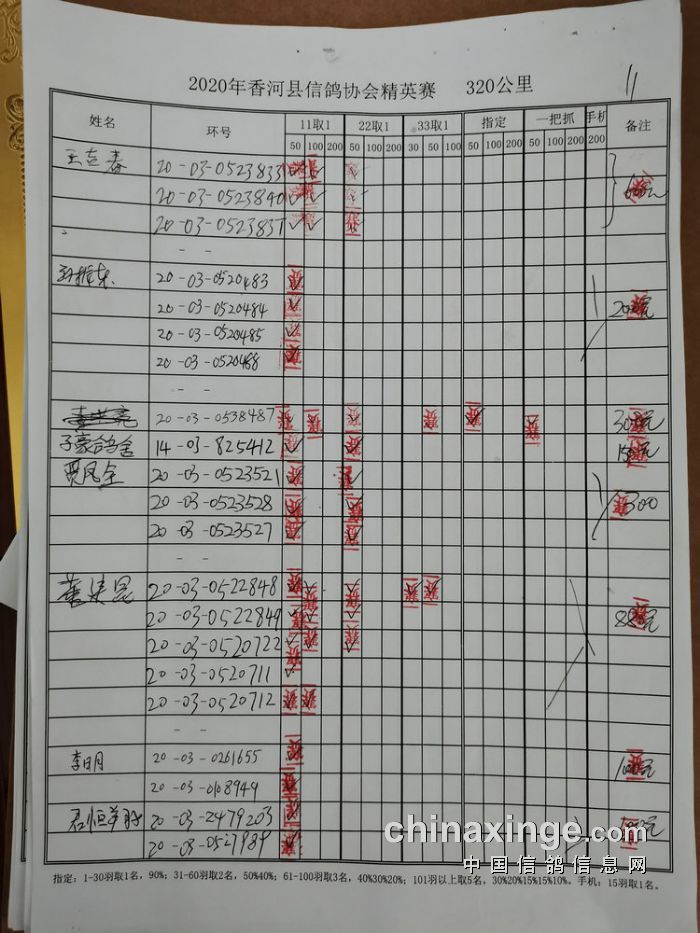 11
2020年香河县信鸽协会精英赛 320公里
姓名 环号 11取1 22取1 33取1 指定 一把抓 手机 备注
50 100 200 50 100 200 30 50 100 50 100 200 50 100 200 200
20-03-0523833
20-03-0523840
20-03-0523837
- -
20-03-0520483
200元
20-03-0520484
20-03-0520485
20-03-0520488
- -
20-03-0538487
子豪鸽舍 14-03-825412 150元
贾凤全 20-03-0523521
20-03-0523528 300
20-03-0523527
- -
20-03-0522848
20-03-0522849
20-03-0520722
20-03-0520711
20-03-0520712
- -
李明月 20-03-0261655 100元
20-03-0108949
20-03-2479203
20-03-0527989
指定：1-30羽取1名，90%；31-60羽取2名，50%40%；61-100羽取3名，40%30%20%；101羽以上取5名，30%20%15%15%10%。手机：15羽取1名。
chinaxinge.com
中国信鸽信息网